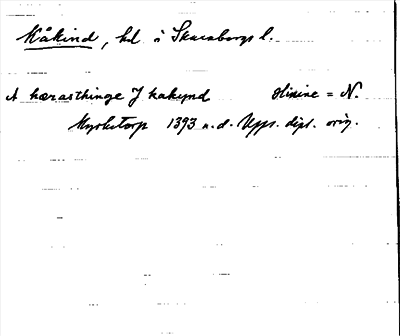 Kåkind, hd i Skaraborgs l.
A hærasthinge J kakynd Olinine = N.
Myrketorp 1393 u.d. Upps. dipl. orig.